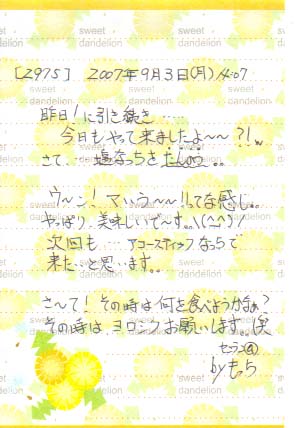 [2975] 2007年9月3日(月) 14:07
昨日!に引き続き……
今日もやって来ましたよ~~?!w
さて…塩なっちをたしのう。。
ウ~ン!マいう~~!!って感じ。。
やっぱり、美味しいで~す。\(^^)/
次回も…アコースティックなっちで
来た…と思います。。
さ~て!その時は何を食べようかなぁ?
その時は、ヨロシクお願いします。(笑
セブン@
byもっち
sweet dandelion